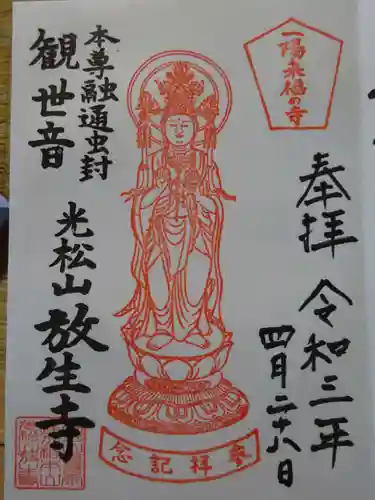 一陽来福の寺
奉拝
令和三年
四月二十八日
本尊融通虫封
観世音
光松山
放生寺
参拝記念